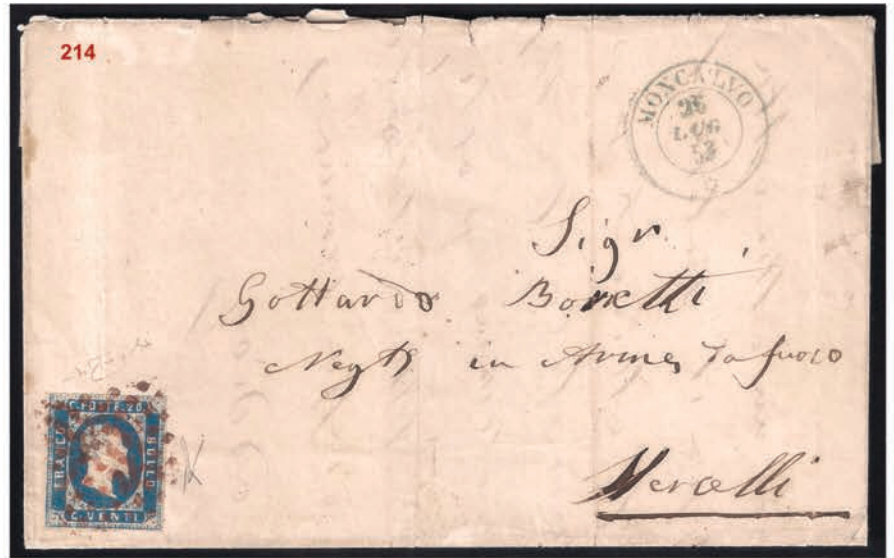 214
MONCALVO
25
LUG
53
Sigr.
Gottardo Bonetti
Negte in Armi da fuoco
Vercelli
C. POSTE. 20
FRANCO
BOLLO
C. VENTI